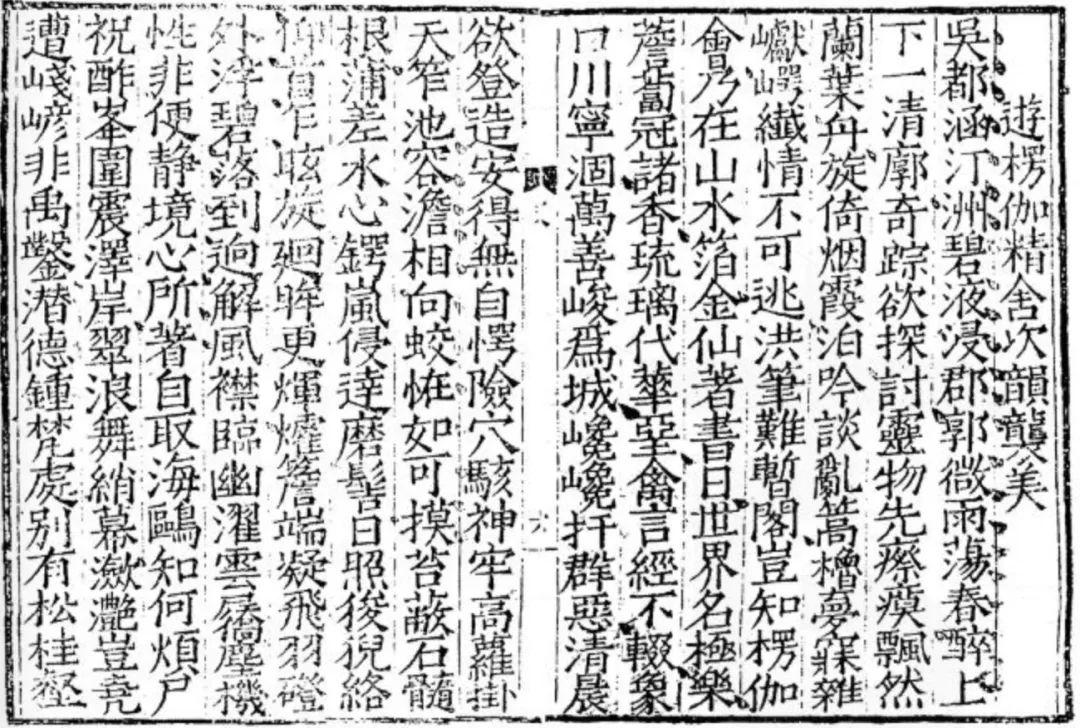 遊楞伽精舍次韻襲美
吳都涵汀洲碧液浸郡郭微雨蕩春醉上
下一清廓奇踪欲探討靈物先瘵瘼飄然
蘭葉舟旋倚烟霞泊吟談亂篙櫓夢寐雜
巘崿纖情不可逃洪筆難暫閣豈知楞伽
會乃在山水箔金仙著書日世界名極樂
薝蔔冠諸香琉璃代華堊禽言經不輟象
口川寧涸萬善峻為城巉巉扞群惡清晨
欲登造安得無自愕險穴駭神牢高蘿掛
天笮池容澹相向蛟怪如可摸苔蔽石髓
根蒲差水心鍔嵐侵達磨髻日照狻猊絡
仰首乍眩旋迴眸更煇爚簷端凝飛羽磴
外浮碧落到迥解風襟臨幽濯雲屩塵機
性非便静境心所著自取海鷗知何煩尸
祝酢峯圍震澤岸翠浪舞綃幕瀲灧豈堯
遭嶘嵃非禹鑿潜德鍾梵處别有松桂壑